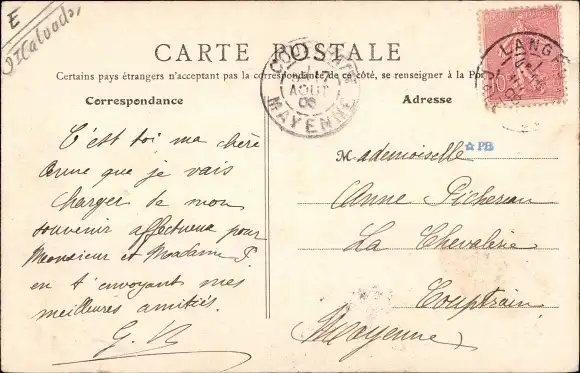 E
Calvados
CARTE POSTALE
Certains pays étrangers n'acceptant pas la correspondance de ce côté, se renseigner à la Po
Correspondance
C'est toi ma chère
Anne que je vais
charger de mon
souvenir affectueux pour
Monsieur et Madame P.
en t'envoyant mes
meilleures amitiés.
AOUT
MAYENNE
Adresse
Mademoiselle
PB
Anne Pichereau
La Chevalerie
Couptrain
Mayenne
LANG
10